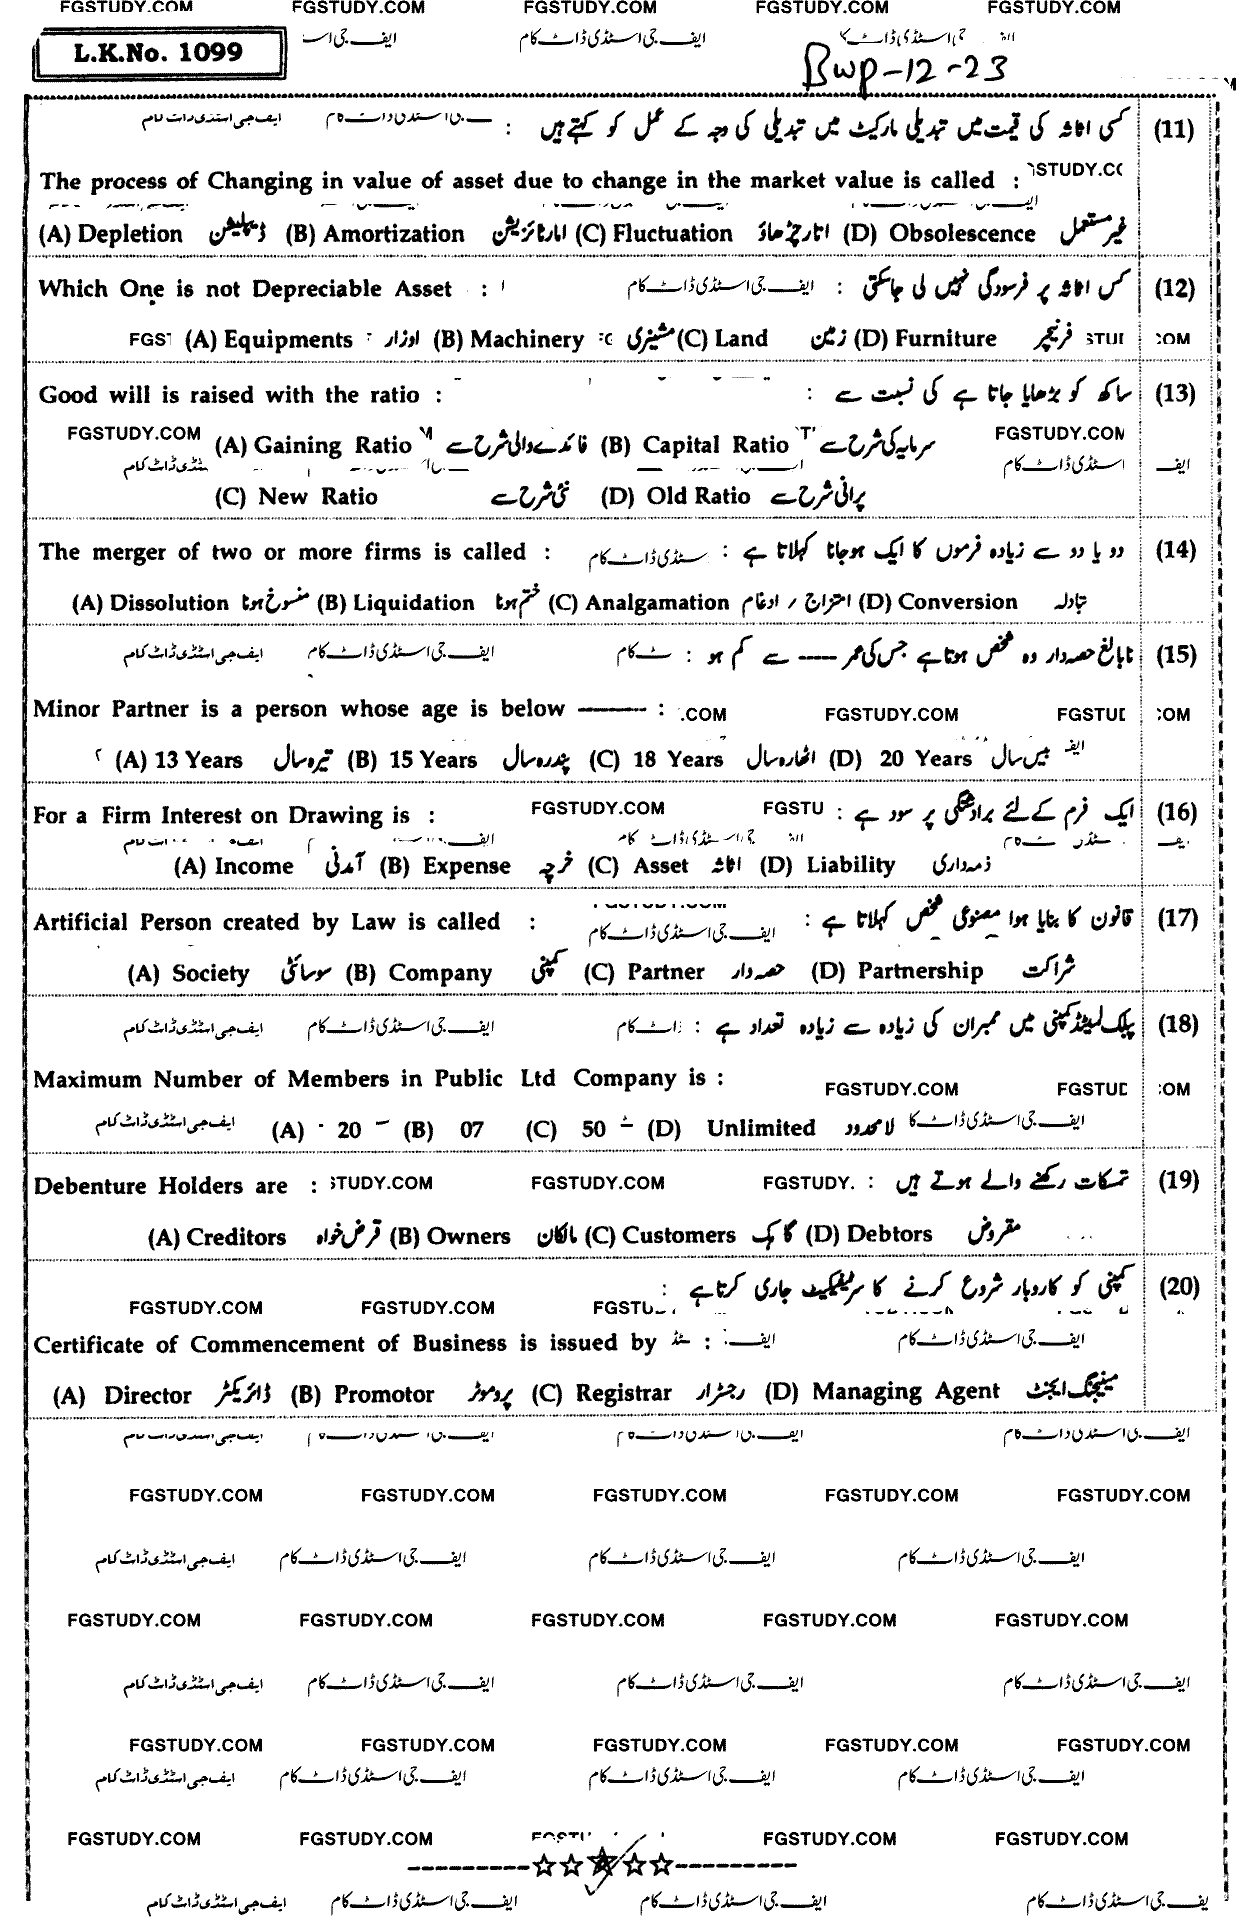 FGSTUDY.COM FGSTUDY.COM FGSTUDY.COM FGSTUDY.COM FGSTUDY.COM
L.K.No. 1099
ایف جی اسٹڈی ڈاٹ کام
Bwp-12-23
(11) کسی اثاثہ کی قیمت میں تبدیلی مارکیٹ میں تبدیلی کی وجہ کے عمل کو کہتے ہیں :
The process of Changing in value of asset due to change in the market value is called :
(A) Depletion ڈیپلیشن (B) Amortization امارٹائزیشن (C) Fluctuation اتار چڑھاؤ (D) Obsolescence غیر مستعمل
(12) کس اثاثہ پر فرسودگی نہیں لی جاسکتی :
Which One is not Depreciable Asset :
ایف جی اسٹڈی ڈاٹ کام
(A) Equipments اوزار (B) Machinery مشینری (C) Land زمین (D) Furniture فرنیچر
(13) ساکھ کو بڑھایا جاتا ہے کی نسبت سے :
Good will is raised with the ratio :
FGSTUDY.COM (A) Gaining Ratio فائدے والی شرح سے (B) Capital Ratio سرمایہ کی شرح سے FGSTUDY.COM
(C) New Ratio نئی شرح سے (D) Old Ratio پرانی شرح سے
(14) دو یا دو سے زیادہ فرموں کا ایک ہوجانا کہلاتا ہے :
The merger of two or more firms is called :
(A) Dissolution منسوخ ہونا (B) Liquidation ختم ہونا (C) Analgamation امتزاج / ادغام (D) Conversion تبادلہ
(15) نابالغ حصہ دار وہ شخص ہوتا ہے جس کی عمر ---- سے کم ہو :
ایف جی اسٹڈی ڈاٹ کام ایف جی اسٹڈی ڈاٹ کام
Minor Partner is a person whose age is below ——— : .COM FGSTUDY.COM
(A) 13 Years تیرہ سال (B) 15 Years پندرہ سال (C) 18 Years اٹھارہ سال (D) 20 Years بیس سال
(16) ایک فرم کے لئے برادشتگی پر سود ہے :
For a Firm Interest on Drawing is : FGSTUDY.COM FGSTU
(A) Income آمدنی (B) Expense خرچہ (C) Asset اثاثہ (D) Liability ذمہ داری
(17) قانون کا بنایا ہوا مصنوعی شخص کہلاتا ہے :
Artificial Person created by Law is called :
ایف جی اسٹڈی ڈاٹ کام
(A) Society سوسائٹی (B) Company کمپنی (C) Partner حصہ دار (D) Partnership شراکت
(18) پبلک لمیٹڈ کمپنی میں ممبران کی زیادہ سے زیادہ تعداد ہے :
ایف جی اسٹڈی ڈاٹ کام ایف جی اسٹڈی ڈاٹ کام
Maximum Number of Members in Public Ltd Company is : FGSTUDY.COM
(A) 20 (B) 07 (C) 50 (D) Unlimited لامحدود
(19) تمسکات رکھنے والے ہوتے ہیں :
Debenture Holders are : STUDY.COM FGSTUDY.COM FGSTUDY.
(A) Creditors قرض خواہ (B) Owners مالکان (C) Customers گاہک (D) Debtors مقروض
(20) کمپنی کو کاروبار شروع کرنے کا سرٹیفکیٹ جاری کرتا ہے :
FGSTUDY.COM FGSTUDY.COM
Certificate of Commencement of Business is issued by :
ایف جی اسٹڈی ڈاٹ کام
(A) Director ڈائریکٹر (B) Promotor پروموٹر (C) Registrar رجسٹرار (D) Managing Agent مینیجنگ ایجنٹ
FGSTUDY.COM FGSTUDY.COM FGSTUDY.COM FGSTUDY.COM FGSTUDY.COM
ایف جی اسٹڈی ڈاٹ کام ایف جی اسٹڈی ڈاٹ کام ایف جی اسٹڈی ڈاٹ کام ایف جی اسٹڈی ڈاٹ کام
FGSTUDY.COM FGSTUDY.COM FGSTUDY.COM FGSTUDY.COM FGSTUDY.COM
ایف جی اسٹڈی ڈاٹ کام ایف جی اسٹڈی ڈاٹ کام ایف جی اسٹڈی ڈاٹ کام ایف جی اسٹڈی ڈاٹ کام
FGSTUDY.COM FGSTUDY.COM FGSTUDY.COM FGSTUDY.COM FGSTUDY.COM
ایف جی اسٹڈی ڈاٹ کام ایف جی اسٹڈی ڈاٹ کام ایف جی اسٹڈی ڈاٹ کام ایف جی اسٹڈی ڈاٹ کام
FGSTUDY.COM FGSTUDY.COM FGSTUDY.COM FGSTUDY.COM
ایف جی اسٹڈی ڈاٹ کام ایف جی اسٹڈی ڈاٹ کام ایف جی اسٹڈی ڈاٹ کام